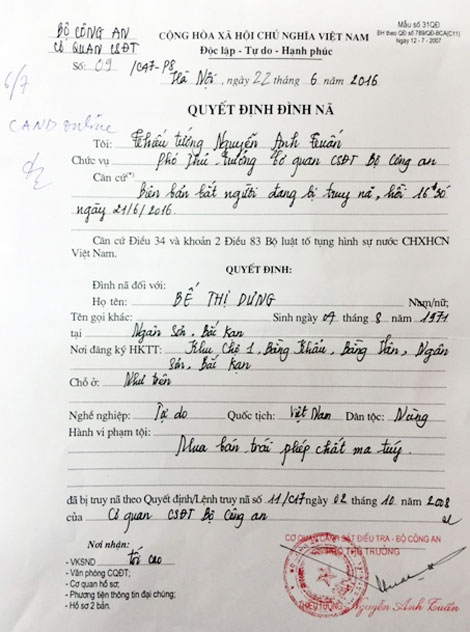 BỘ CÔNG AN
CƠ QUAN CSĐT
Số: 09 /C47-P8
CỘNG HÒA XÃ HỘI CHỦ NGHĨA VIỆT NAM
Độc lập - Tự do - Hạnh phúc
Mẫu số 31QĐ
BH theo QĐ số 789/QĐ-BCA(C11)
Ngày 12 - 7 - 2007
Hà Nội, ngày 22 tháng 6 năm 2016
6/7
CAND online
QUYẾT ĐỊNH ĐÌNH NÃ
Tôi: Thiếu tướng Nguyễn Anh Tuấn
Chức vụ Phó Thủ trưởng Cơ quan CSĐT Bộ Công an
Căn cứ(*) Biên bản bắt người đang bị truy nã, hồi 16h30
ngày 21/6/2016.
Căn cứ Điều 34 và khoản 2 Điều 83 Bộ luật tố tụng hình sự nước CHXHCN
Việt Nam.
QUYẾT ĐỊNH:
Đình nã đối với:
Họ tên: BẾ THỊ DƯNG Nam/nữ;
Tên gọi khác: Sinh ngày 09 tháng 8 năm 1971
tại Ngân Sơn, Bắc Kạn
Nơi đăng ký HKTT: Khu Chợ 1, Bằng Khẩu, Bằng Vân, Ngân
Sơn, Bắc Kạn
Chỗ ở: Như trên
Nghề nghiệp: Tự do Quốc tịch: Việt Nam Dân tộc: Nùng
Hành vi phạm tội:
Mua bán trái phép chất ma túy.
đã bị truy nã theo Quyết định/Lệnh truy nã số 11/C17 ngày 02 tháng 10 năm 2008
của Cơ quan CSĐT Bộ Công an
Nơi nhận:
- VKSND tối cao
- Văn phòng CQĐT;
- Cơ quan hồ sơ;
- Phương tiện thông tin đại chúng;
- Hồ sơ 2 bản.
CƠ QUAN CẢNH SÁT ĐIỀU TRA - BỘ CÔNG AN
PHÓ THỦ TRƯỞNG
THIẾU TƯỚNG Nguyễn Anh Tuấn